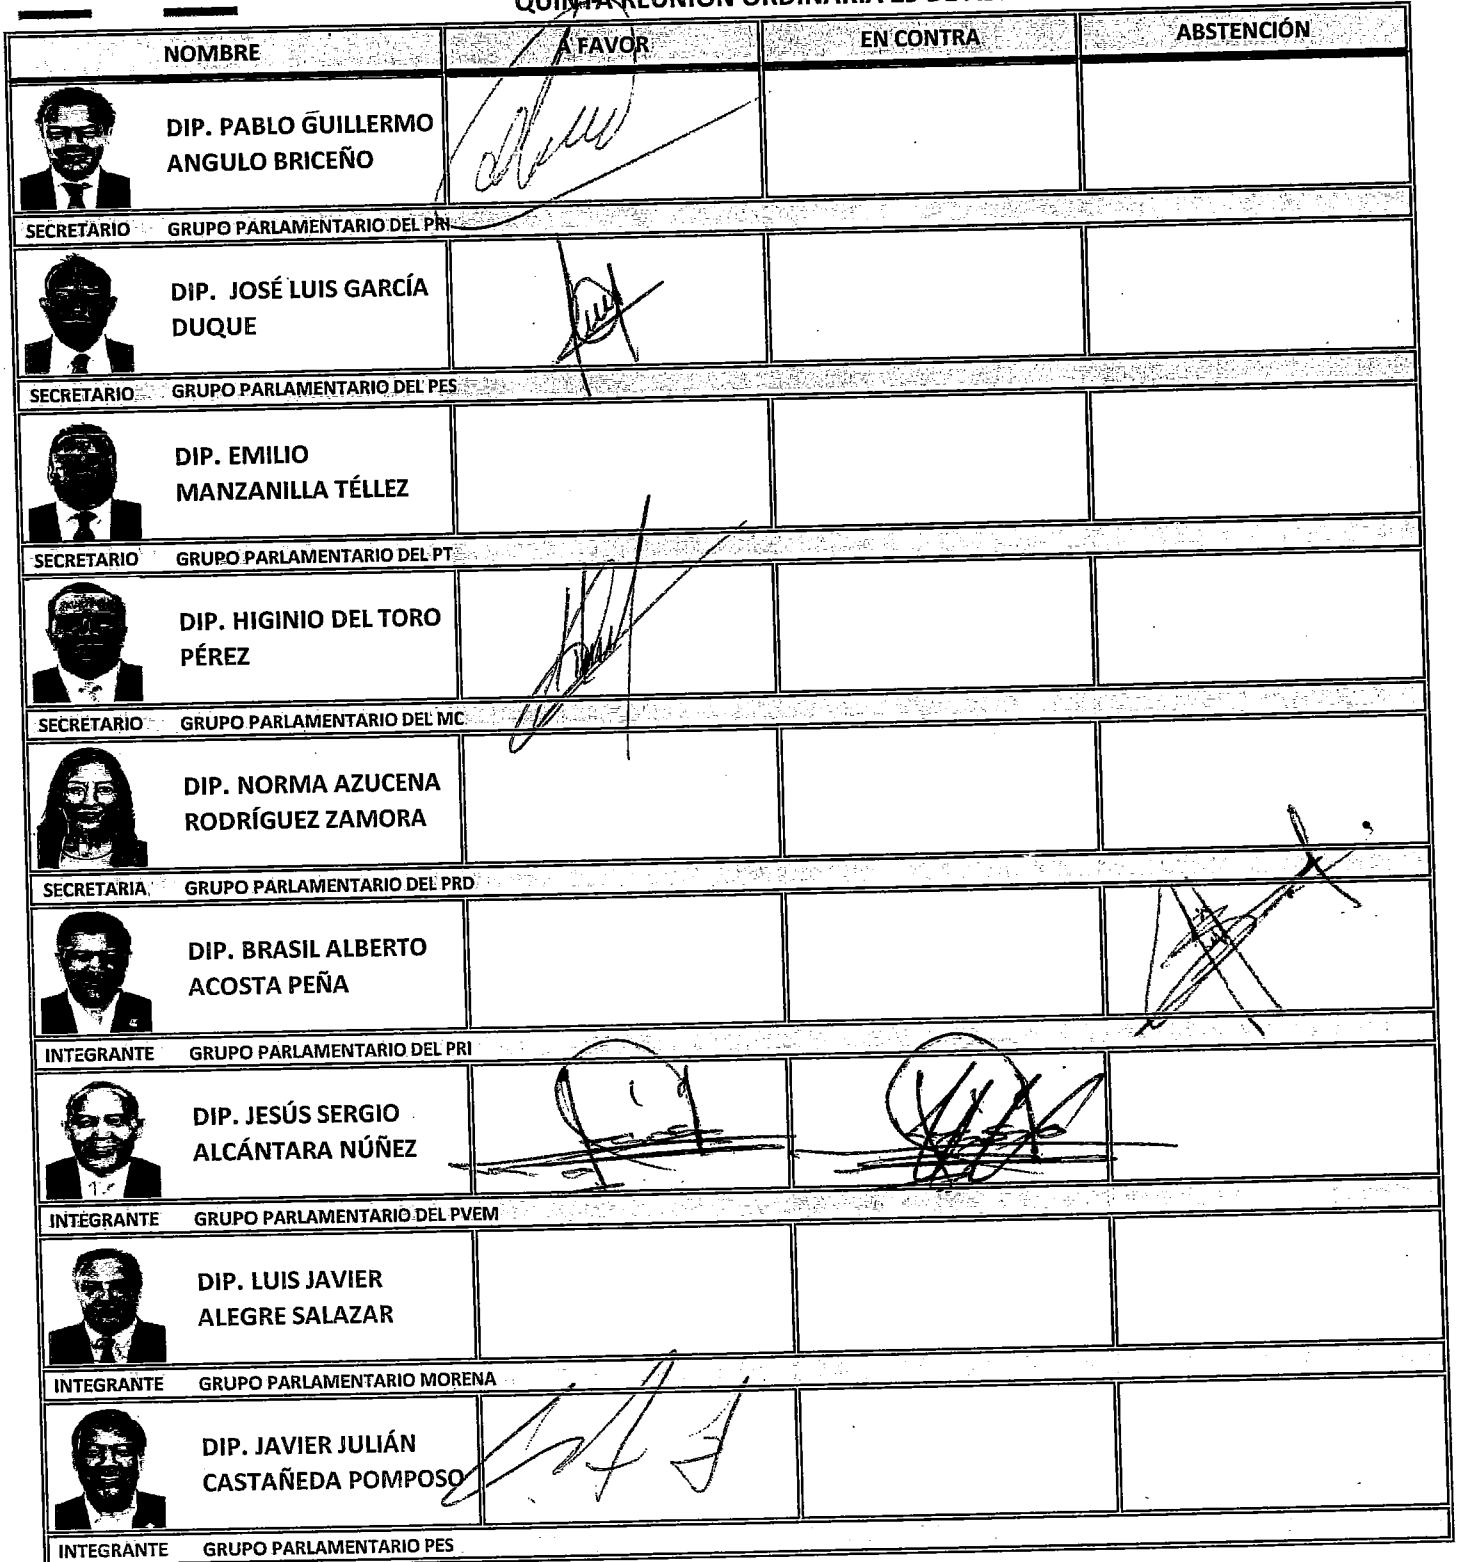 QUINTA REUNIÓN ORDINARIA
NOMBRE A FAVOR EN CONTRA ABSTENCIÓN
DIP. PABLO GUILLERMO
ANGULO BRICEÑO
SECRETARIO GRUPO PARLAMENTARIO DEL PRI
DIP. JOSÉ LUIS GARCÍA
DUQUE
SECRETARIO GRUPO PARLAMENTARIO DEL PES
DIP. EMILIO
MANZANILLA TÉLLEZ
SECRETARIO GRUPO PARLAMENTARIO DEL PT
DIP. HIGINIO DEL TORO
PÉREZ
SECRETARIO GRUPO PARLAMENTARIO DEL MC
DIP. NORMA AZUCENA
RODRÍGUEZ ZAMORA
SECRETARIA GRUPO PARLAMENTARIO DEL PRD
DIP. BRASIL ALBERTO
ACOSTA PEÑA
INTEGRANTE GRUPO PARLAMENTARIO DEL PRI
DIP. JESÚS SERGIO
ALCÁNTARA NÚÑEZ
INTEGRANTE GRUPO PARLAMENTARIO DEL PVEM
DIP. LUIS JAVIER
ALEGRE SALAZAR
INTEGRANTE GRUPO PARLAMENTARIO MORENA
DIP. JAVIER JULIÁN
CASTAÑEDA POMPOSO
INTEGRANTE GRUPO PARLAMENTARIO PES